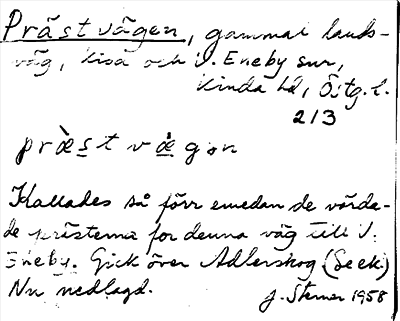 Prästvägen, gammal lands-
väg, Kisa och V. Eneby snr,
Kinda hd, Östg. l.
213
præ̀st væ̀gən
Kallades så förr emedan de vörda-
de prästerna for denna väg till V.
Eneby. Gick över Adlerskog (se ek.)
Nu nedlagd.
J. Sterner 1958